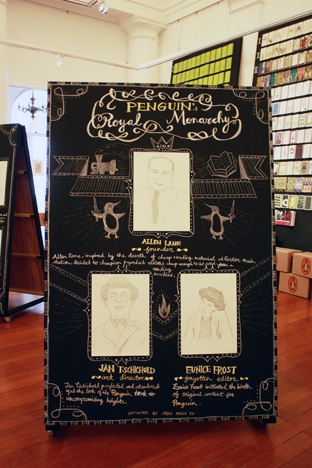 PENGUIN'S
Royal Monarchy
ALLEN LANE
founder
Allen Lane, inspired by the dearth of cheap reading material at Exeter train
station, decided to champion
reading
JAN TSCHICHOLD
art director
Jan Tschichold perfected and standard
the look of the Penguin book to
uncompromising heights.
EUNICE FROST
forgotten editor
Eunice Frost initiated the birth
of original content for
Penguin.
ARTWORKS BY